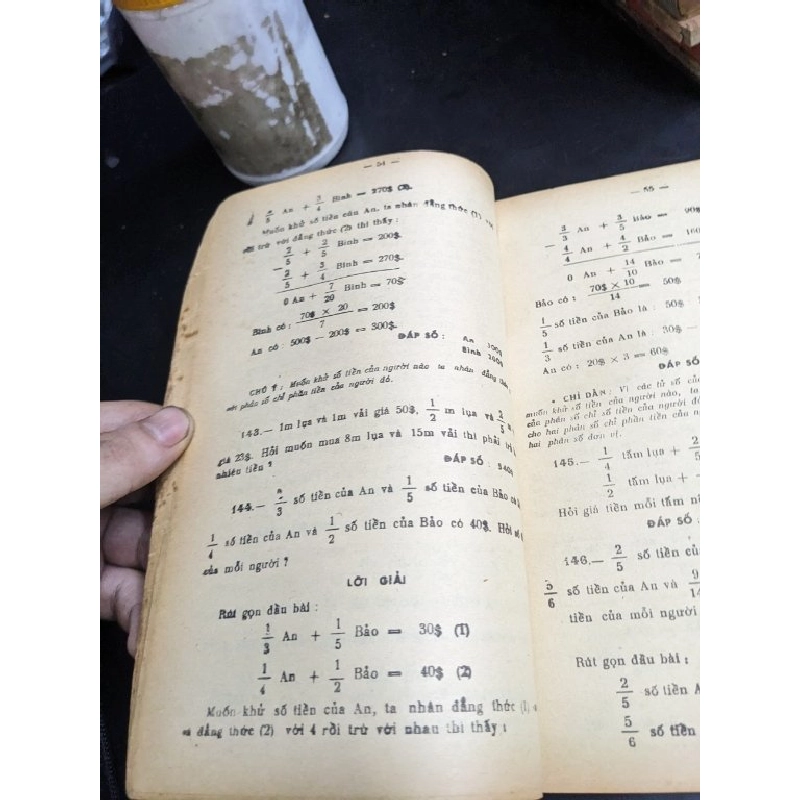 — 54 —
An + 3/4 Bình = 270$ (2).
Muốn khử số tiền của An, ta nhân đẳng thức (1) với
rồi trừ với đẳng thức (2) thì thấy :
2/5 + 2/5 Bình = 200$.
— 2/5 + 3/4 Bình = 270$.
0 An + 7/20 Bình = 70$
Bình có : 70$ × 20 / 7 = 200$
An có : 500$ — 200$ = 300$.
ĐÁP SỐ : An 300$
Bình 200$
CHÚ Ý : Muốn khử số tiền của người nào ta nhân đẳng thức
với phân số chỉ phần tiền của người đó.
143.— 1m lụa và 1m vải giá 50$, 1/2 m lụa và 2/5
giá 23$. Hỏi muốn mua 8m lụa và 15m vải thì phải trả
nhiêu tiền ?
ĐÁP SỐ :
144.— /3 số tiền của An và 1/5 số tiền của Bảo
1/4 số tiền của An và 1/2 số tiền của Bảo có 40$. Hỏi số
của mỗi người ?
LỜI GIẢI
Rút gọn đầu bài :
1/3 An + 1/5 Bảo = 30$ (1)
1/4 An + 1/2 Bảo = 40$ (2)
Muốn khử số tiền của An, ta nhân đẳng thức (1)
đẳng thức (2) với 4 rồi trừ với nhau thì thấy :
— 55 —
3/3 An + 3/5 Bảo = 90$
— 4/4 An + 4/2 Bảo = 160
0 An + 14/10 Bảo = 7
Bảo có : 70$ × 10 / 14 = 50$
1/5 số tiền của Bảo là : 50$
1/3 số tiền của An là : 30$ —
An có : 20$ × 3 = 60$
ĐÁP SỐ
CHỈ DẪN : Vì các tử số của
muốn khử số tiền của người nào, ta
của phân số chỉ số tiền của người đó
cho hai phân số chỉ phần tiền của
hai phân số đơn vị.
145.— 1/4 tấm lụa + 2/5
1/2 tấm lụa +
Hỏi giá tiền mỗi tấm
ĐÁP SỐ :
146.— 2/5 số tiền
5/6 số tiền của An và 9/14
tiền của mỗi người
Rút gọn đầu bài :
2/5 số tiền A
5/6 số tiền